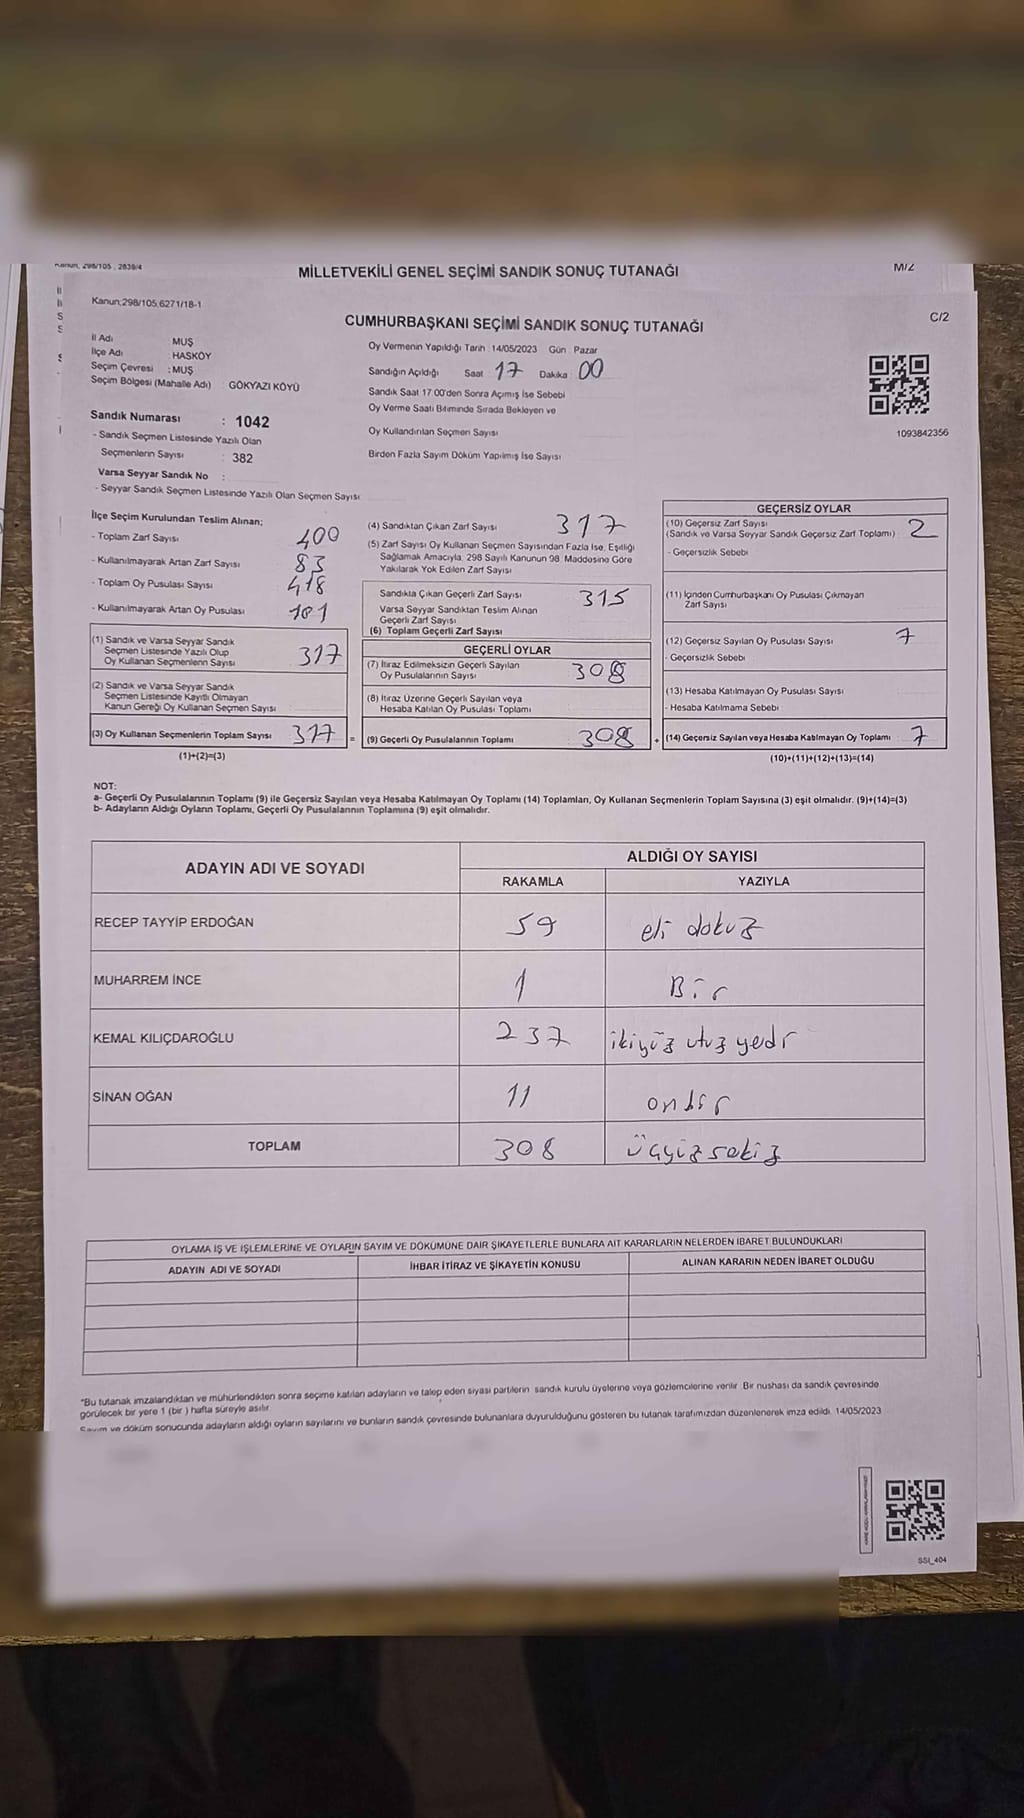 Kanun, 298/105, 2839/4
M/2
MİLLETVEKİLİ GENEL SEÇİMİ SANDIK SONUÇ TUTANAĞI
Kanun;298/105;6271/18-1
C/2
CUMHURBAŞKANI SEÇİMİ SANDIK SONUÇ TUTANAĞI
İl Adı MUŞ
İlçe Adı : HASKÖY
Seçim Çevresi : MUŞ
Seçim Bölgesi (Mahalle Adı) GÖKYAZI KÖYÜ
Sandık Numarası : 1042
- Sandık Seçmen Listesinde Yazılı Olan
Seçmenlerin Sayısı : 382
Varsa Seyyar Sandık No :
- Seyyar Sandık Seçmen Listesinde Yazılı Olan Seçmen Sayısı
Oy Vermenin Yapıldığı Tarih : 14/05/2023 Gün : Pazar
Sandığın Açıldığı Saat 17 Dakika : 00
Sandık Saat 17:00'den Sonra Açımış İse Sebebi
Oy Verme Saati Bitiminde Sırada Bekleyen ve
Oy Kullandırılan Seçmen Sayısı
Birden Fazla Sayım Döküm Yapılmış İse Sayısı
1093842356
İlçe Seçim Kurulundan Teslim Alınan;
- Toplam Zarf Sayısı 400
- Kullanılmayarak Artan Zarf Sayısı 83
- Toplam Oy Pusulası Sayısı 418
- Kullanılmayarak Artan Oy Pusulası 101
(1) Sandık ve Varsa Seyyar Sandık
Seçmen Listesinde Yazılı Olup
Oy Kullanan Seçmenlerin Sayısı 317
(2) Sandık ve Varsa Seyyar Sandık
Seçmen Listesinde Kayıtlı Olmayan
Kanun Gereği Oy Kullanan Seçmen Sayısı
(3) Oy Kullanan Seçmenlerin Toplam Sayısı 317 =
(1)+(2)=(3)
(4) Sandıktan Çıkan Zarf Sayısı 317
(5) Zarf Sayısı Oy Kullanan Seçmen Sayısından Fazla İse, Eşitliği
Sağlamak Amacıyla, 298 Sayılı Kanunun 98. Maddesine Göre
Yakılarak Yok Edilen Zarf Sayısı
Sandıkta Çıkan Geçerli Zarf Sayısı 315
Varsa Seyyar Sandıktan Teslim Alınan
Geçerli Zarf Sayısı
(6) Toplam Geçerli Zarf Sayısı
GEÇERLİ OYLAR
(7) İtiraz Edilmeksizin Geçerli Sayılan
Oy Pusulalarının Sayısı 308
(8) İtiraz Üzerine Geçerli Sayılan veya
Hesaba Katılan Oy Pusulası Toplamı
(9) Geçerli Oy Pusulalarının Toplamı 308 +
GEÇERSİZ OYLAR
(10) Geçersiz Zarf Sayısı
(Sandık ve Varsa Seyyar Sandık Geçersiz Zarf Toplamı) 2
- Geçersizlik Sebebi
(11) İçinden Cumhurbaşkanı Oy Pusulası Çıkmayan
Zarf Sayısı
(12) Geçersiz Sayılan Oy Pusulası Sayısı 7
- Geçersizlik Sebebi
(13) Hesaba Katılmayan Oy Pusulası Sayısı
- Hesaba Katılmama Sebebi
(14) Geçersiz Sayılan veya Hesaba Katılmayan Oy Toplamı 7
(10)+(11)+(12)+(13)=(14)
NOT:
a- Geçerli Oy Pusulalarının Toplamı (9) ile Geçersiz Sayılan veya Hesaba Katılmayan Oy Toplamı (14) Toplamları, Oy Kullanan Seçmenlerin Toplam Sayısına (3) eşit olmalıdır. (9)+(14)=(3)
b- Adayların Aldığı Oyların Toplamı, Geçerli Oy Pusulalarının Toplamına (9) eşit olmalıdır.
ADAYIN ADI VE SOYADI ALDIĞI OY SAYISI
RAKAMLA YAZIYLA
RECEP TAYYİP ERDOĞAN 59 eli dokuz
MUHARREM İNCE 1 Bir
KEMAL KILIÇDAROĞLU 237 ikiyüz utuz yedi
SİNAN OĞAN 11 onbir
TOPLAM 308 üçyüz sekiz
OYLAMA İŞ VE İŞLEMLERİNE VE OYLARIN SAYIM VE DÖKÜMÜNE DAİR ŞİKAYETLERLE BUNLARA AİT KARARLARIN NELERDEN İBARET BULUNDUKLARI
ADAYIN ADI VE SOYADI İHBAR İTİRAZ VE ŞİKAYETİN KONUSU ALINAN KARARIN NEDEN İBARET OLDUĞU
*Bu tutanak imzalandıktan ve mühürlendikten sonra seçime katılan adayların ve talep eden siyasi partilerin sandık kurulu üyelerine veya gözlemcilerine verilir. Bir nüshası da sandık çevresinde
görülecek bir yere 1 (bir ) hafta süreyle asılır.
Sayım ve döküm sonucunda adayların aldığı oyların sayılarını ve bunların sandık çevresinde bulunanlara duyurulduğunu gösteren bu tutanak tarafımızdan düzenlenerek imza edildi. 14/05/2023
SSI_404